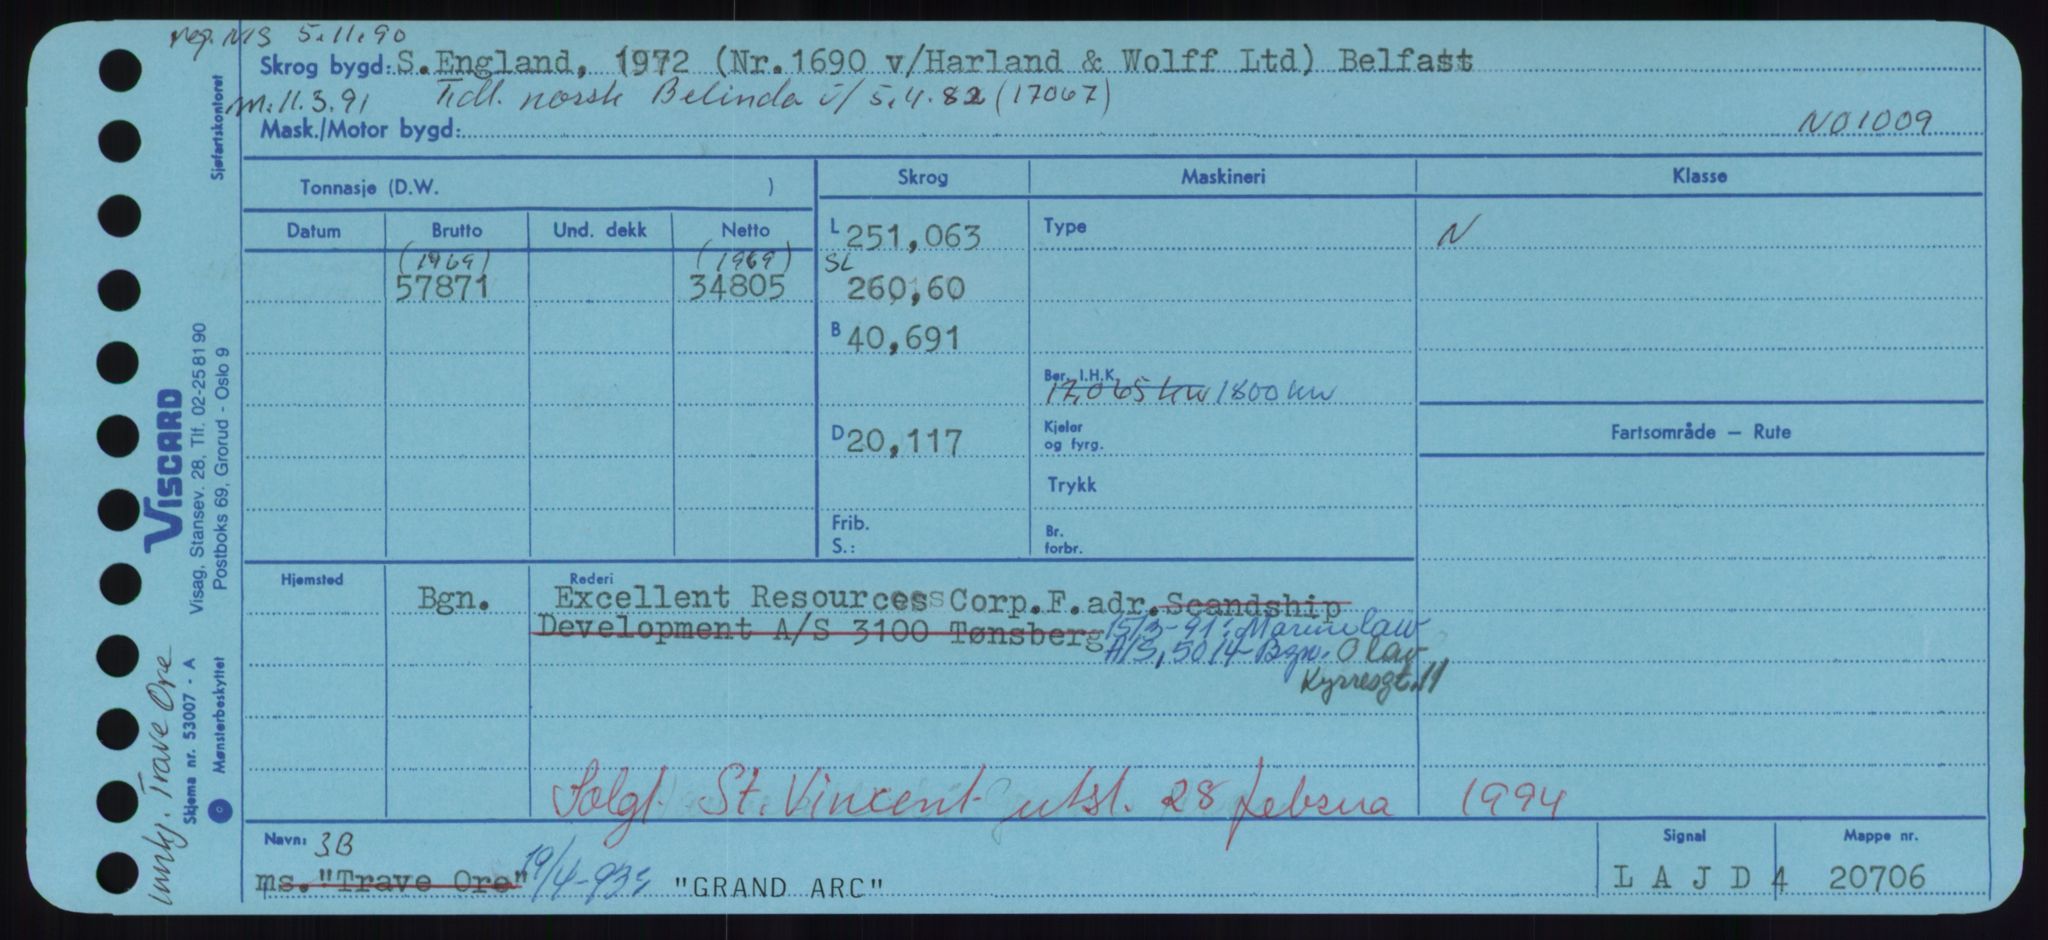 reg. NIS 5.11.90
Skrog bygd: S.England, 1972 (Nr.1690 v/Harland & Wolff Ltd) Belfast
m. 11.3.91 Tidl. norsk Belinda i/ 5.4.82 (17067)
Mask./Motor bygd: N01009
Sjøfartskontoret
Tonnasje (D.W. ) Skrog Maskineri Klasse
Datum Brutto Und. dekk Netto L 251,063 Type N
(1969) (1969) SL
57871 34805 260,60
B 40,691
Ber. I.H.K.
17,065 kw 1800 kw
D 20,117 Kjeler og fyrg. Fartsområde — Rute
Trykk
Frib.
S.: Br. forbr.
Hjemsted Rederi
Bgn. Excellent Resources Corp.F.adr. Scandship
Development A/S 3100 Tønsberg 15/3-91: Marinelaw
A/S, 5014 Bgn. Olav
Kyrresgt. 11
Solgt St. Vincent utsl. 28 februa 1994
Navn: 3B Signal Mappe nr.
ms. "Trave Ore" 19/4-93: "GRAND ARC" L A J D 4 20706
VISCARD
Visag, Stansev. 28, Tlf. 02-25 81 90
Postboks 69, Grorud - Oslo 9
Skjema nr. 53007 - A
Mønsterbeskyttet
innkj. Trave Ore